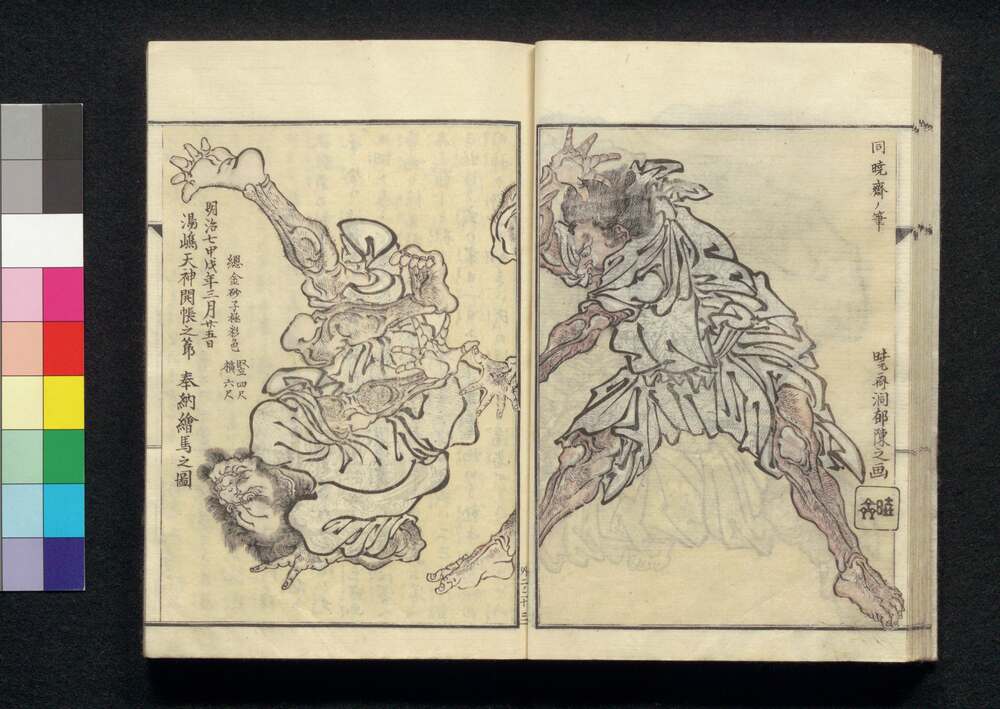 同曉齋ノ筆
曉齋洞郁陳之画
明治七甲戌年三月廿五日
湯嶋天神開帳之節　奉納繪馬之圖
總金砂子極彩色
竪四尺
横六尺
外二ノ二十二